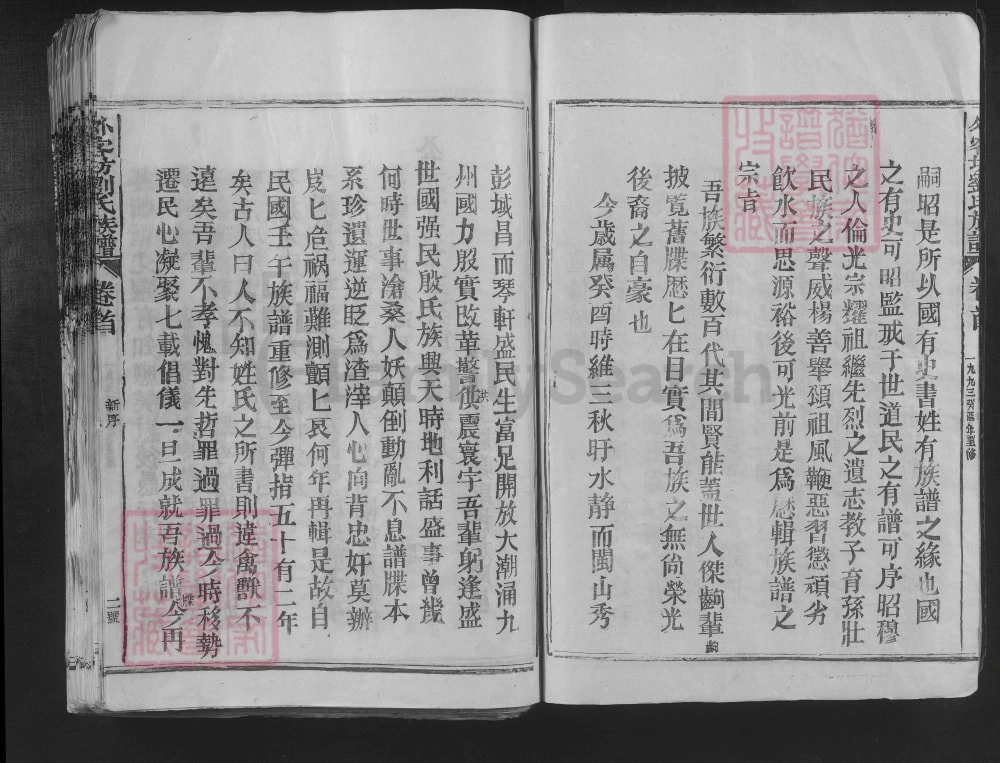 嗣昭是所以國有史書姓有族譜之緣也國
之有史可昭監戒于世道民之有譜可序昭穆
之人倫光宗耀祖繼先烈之遺志教子育孫壯
民族之聲威楊善舉頌祖風鞭惡習懲頑劣
飲水而思源裕後可光前是爲歷輯族譜之
宗旨
吾族繁衍數百代其間賢能蓋世人傑齣輩
披覽舊牒歷匕在目實爲吾族之無尚榮光
後裔之自豪也
今歲属癸酉時維三秋旴水静而閩山秀
一九九三癸酉年重修
彭域昌而琴軒盛民生富足開放大潮涌九
州國力殷實改革警供震寰宇吾輩躬逢盛
世國强民殷氏族興天時地利話盛事曾幾
何時世事滄桑人妖顛倒動亂不息譜牒本
系珍還運逆眨爲渣滓人心向背忠奸莫辦
岌匕危祸福難測顫匕艮何年再輯是故自
民國壬午族譜重修至今彈指五十有二年
矣古人曰人不知姓氏之所書則違禽獸不
遠矣吾輩不孝愧對先哲罪過罪過今時移勢
遷民心凝聚七載倡儀一旦成就吾族譜牒今再
劉氏族譜
卷首
新序
二號
FamilySearch